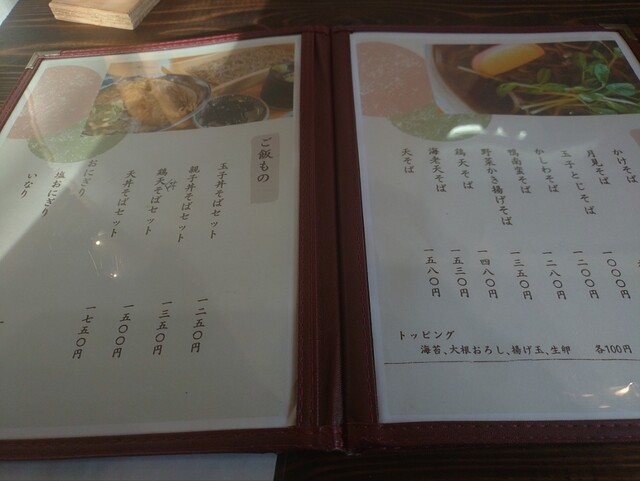 ご飯もの
玉子丼そばセット
一二五〇円
親子丼そばセット
一三五〇円
鶏天そばセット
一五〇〇円
天丼そばセット
一七五〇円
おにぎり
塩おにぎり
いなり
かけそば
月見そば
一〇〇〇円
玉子とじそば
一二〇〇円
かしわそば
一二八〇円
鴨南蛮そば
一三五〇円
野菜かき揚げそば
一四八〇円
鶏天そば
一五三〇円
海老天そば
一五八〇円
天そば
トッピング
海苔、大根おろし、揚げ玉、生卵 各100円